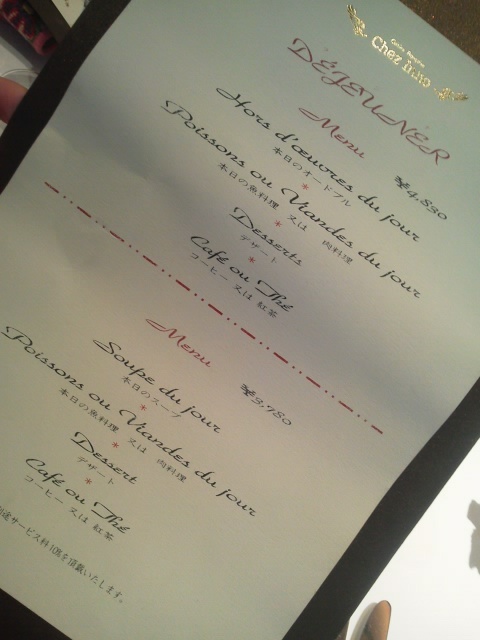 Cuisine Française
Chez inno
DÉJEUNER
Menu ¥4,890
Hors d'œuvres du jour
本日のオードブル
*
Poissons ou Viandes du jour
本日の魚料理 又は 肉料理
*
Desserts
デザート
*
Café ou Thé
コーヒー 又は 紅茶
Menu ¥3,780
Soupe du jour
本日のスープ
*
Poissons ou Viandes du jour
本日の魚料理 又は 肉料理
*
Dessert
デザート
*
Café ou Thé
コーヒー 又は 紅茶
別途サービス料10%を頂戴いたします。